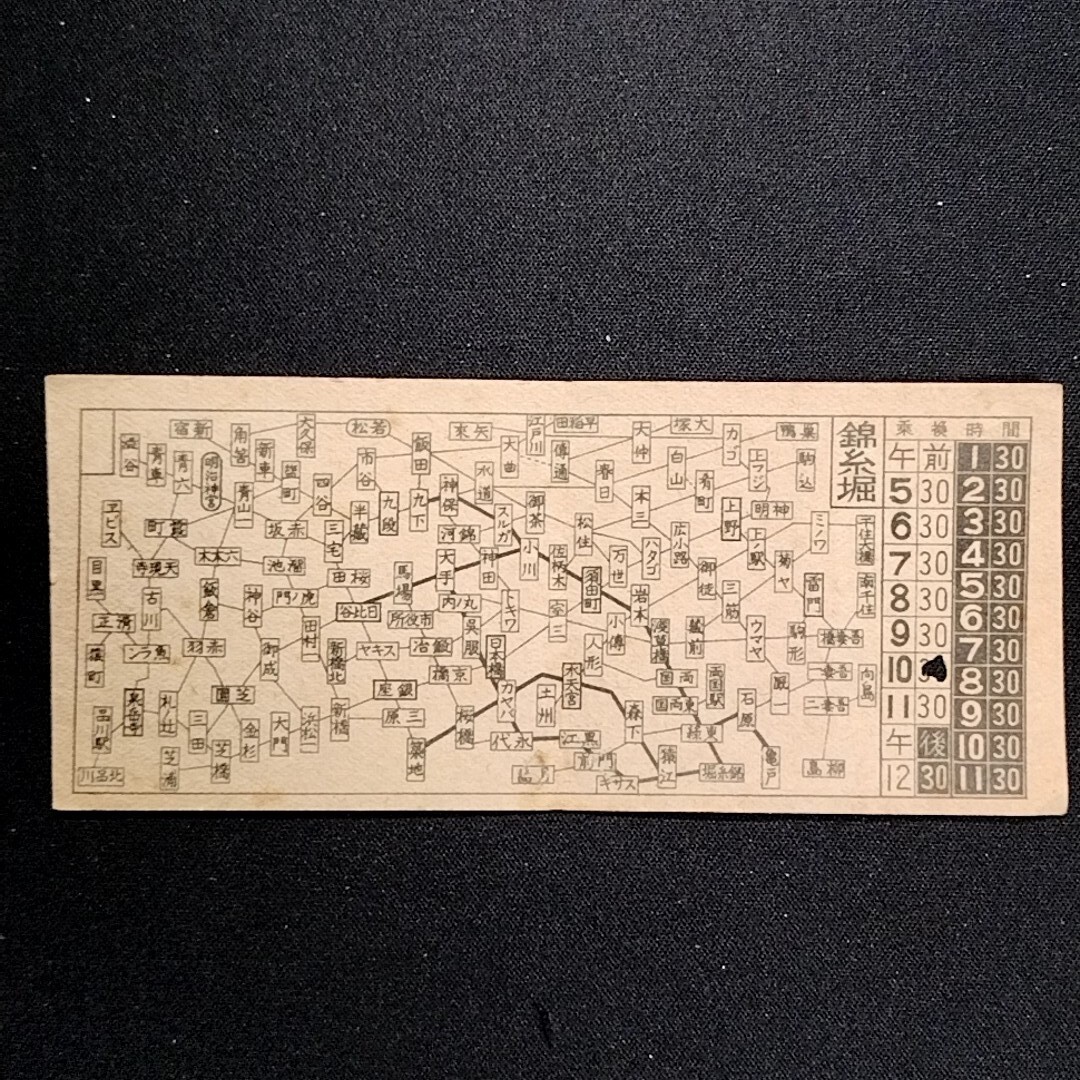 錦糸堀
乗換時間
午前 1 30
5 30 2 30
6 30 3 30
7 30 4 30
8 30 5 30
9 30 6 30
10 7 30
11 30 8 30
午後 9 30
12 30 10 30
11 30
宿新
角筈
大久保
松若
飯田
東矢
大曲
江戸川
田稲早
大仲
塚大
カゴ
鴨巣
渋谷
青車
青六
明治神宮
新車
四谷
市谷
水道
傳通
春日
白山
肴町
上フジ
駒込
ヱビス
青山一
坂赤
三宅
半蔵
九段
九下
神保
スルガ
御茶
松住
本三
広小路
上野
明神
ミノワ
千住大橋
目黒
寺現天
木本六
池溜
田桜
馬場
大手
河錦
神田
小川
佐柄木
万世
ハタゴ
上駅
菊ヤ
南千住
古川
飯倉
神谷
門ノ虎
谷比日
所役市
内ノ丸
トキワ
室三
須田町
岩木
御徒
三筋
雷門
正清
ンラ魚
羽赤
御成
田村
新橋北
ヤキス
冶鍛
呉服
日本橋
人形
小傳
浅草橋
蔵前
ウマヤ
駒形
橋妻吾
東岳寺
札ノ辻
国芝
座銀
橋京
カヤバ
土州
水天宮
国両
両国駅
厩一
一妻吾
向島
品川駅
三田
金杉
大門
浜松一
新橋
原三
桜橋
森下
国両東
緑東
石原
二妻吾
川品北
芝浦
芝橋
築地
代永
江黒
前門
島月
キサス
猿江
堀糸錦
亀戸
島柳